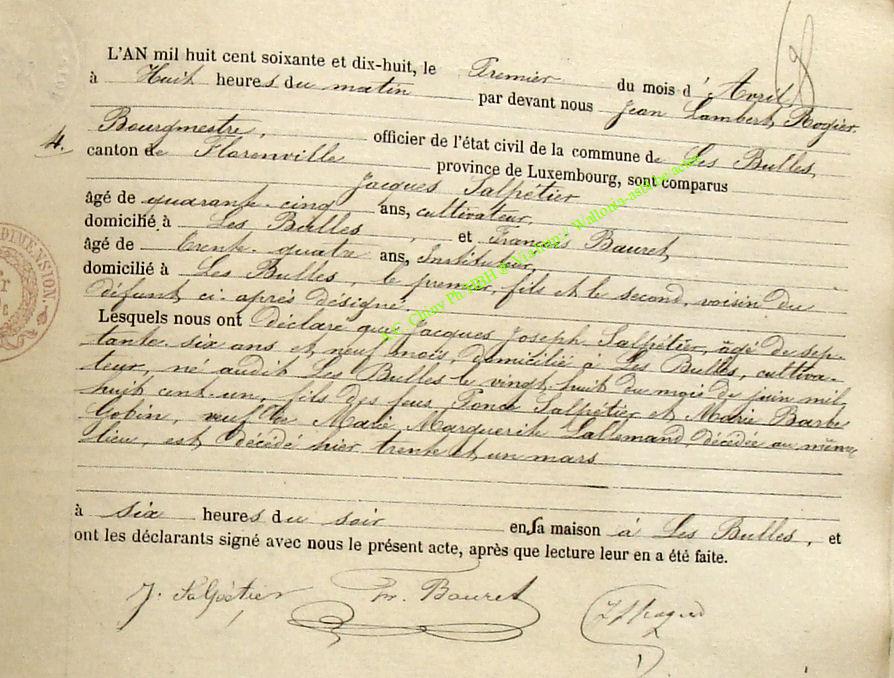 L'AN mil huit cent soixante et dix-huit, le Premier du mois d'Avril,
à Huit heures du matin par devant nous Jean Lambert Rogier,
Bourgmestre, officier de l'état civil de la commune de Les Bulles,
4.
canton de Florenville province de Luxembourg, sont comparus
Jacques Salpétier
âgé de quarante-cinq ans, cultivateur,
domicilié à Les Bulles, et François Bauret
âgé de trente-quatre ans, Instituteur,
domicilié à Les Bulles, le premier, fils et le second, voisin du
défunt ci-après désigné.
Lesquels nous ont Déclaré que Jacques Joseph Salpétier, âgé de sep-
tante-six ans et neuf mois, domicilié à Les Bulles, cultiva-
teur, né audit Les Bulles le vingt-huit du mois de juin mil
huit cent-un, fils des feus Ponce Salpétier et Marie Barbe
Gobin, veuf de Marie Marguerite Lallemand, décédée au même
lieu, est décédé hier trente et un mars
à six heures du soir en sa maison à Les Bulles, et
ont les déclarants signé avec nous le présent acte, après que lecture leur en a été faite.
J. Salpétier Fr. Bauret
DIMENSION